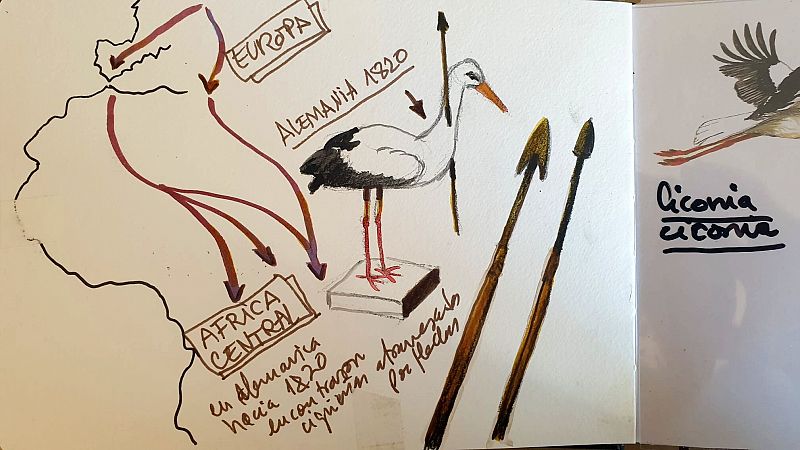 EUROPA
ALEMANIA 1820
AFRICA
CENTRAL
en Alemania
hacia 1820
encontraron
cigüeñas atravesadas
por flechas
Ciconia
ciconia